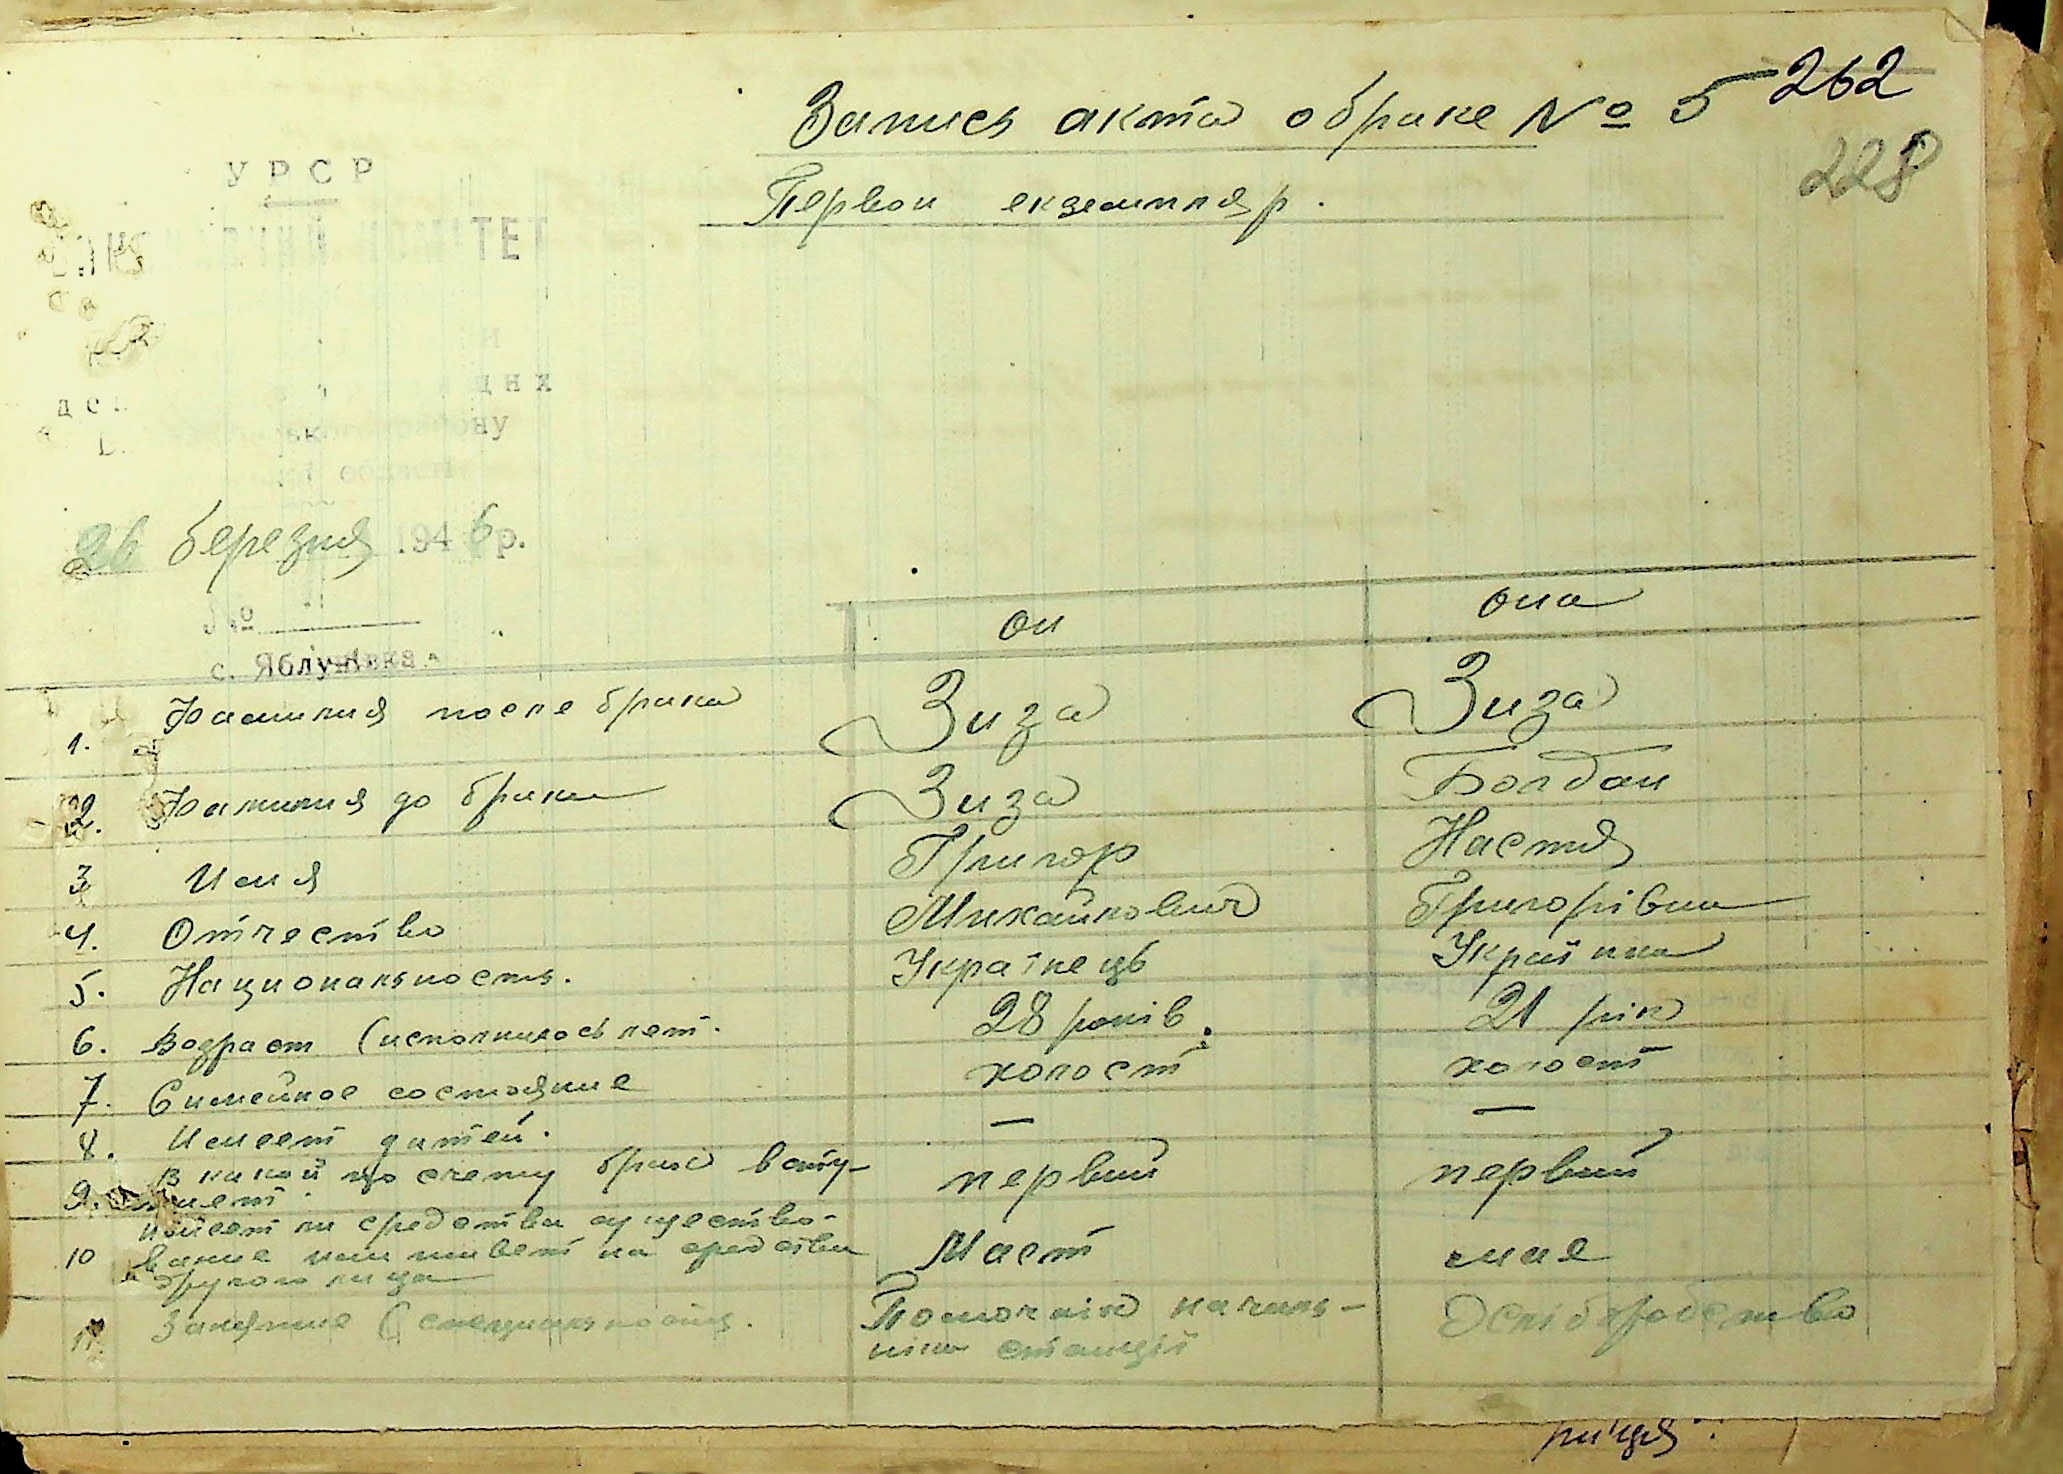 Запись акта о браке № 5
262
Первои екземпляр.
228
УРСР
КОМІТЕТ
району
області
26 березня 1946 р.
№
с. Яблунівка
он она
1. Фамилия после брака Зиза Зиза
2. Фамилия до брака Зиза Болдан
3 Имя Григор Настя
4. Отчество Михайлович Григорівна
5. Национальность. Українець Українка
6. Возраст (исполнилось лет. 28 років. 21 рік
7. Симейное состояние холост холост
8. Имеет дитей. — —
9. В какой по счету брак всту-
пает. первий первий
10 Имеет ли средства существо-
вание или живет на средства Маєт має
другого лица
11. Занятие (специальность. Помочнік началь-
ніка станції
рікця.